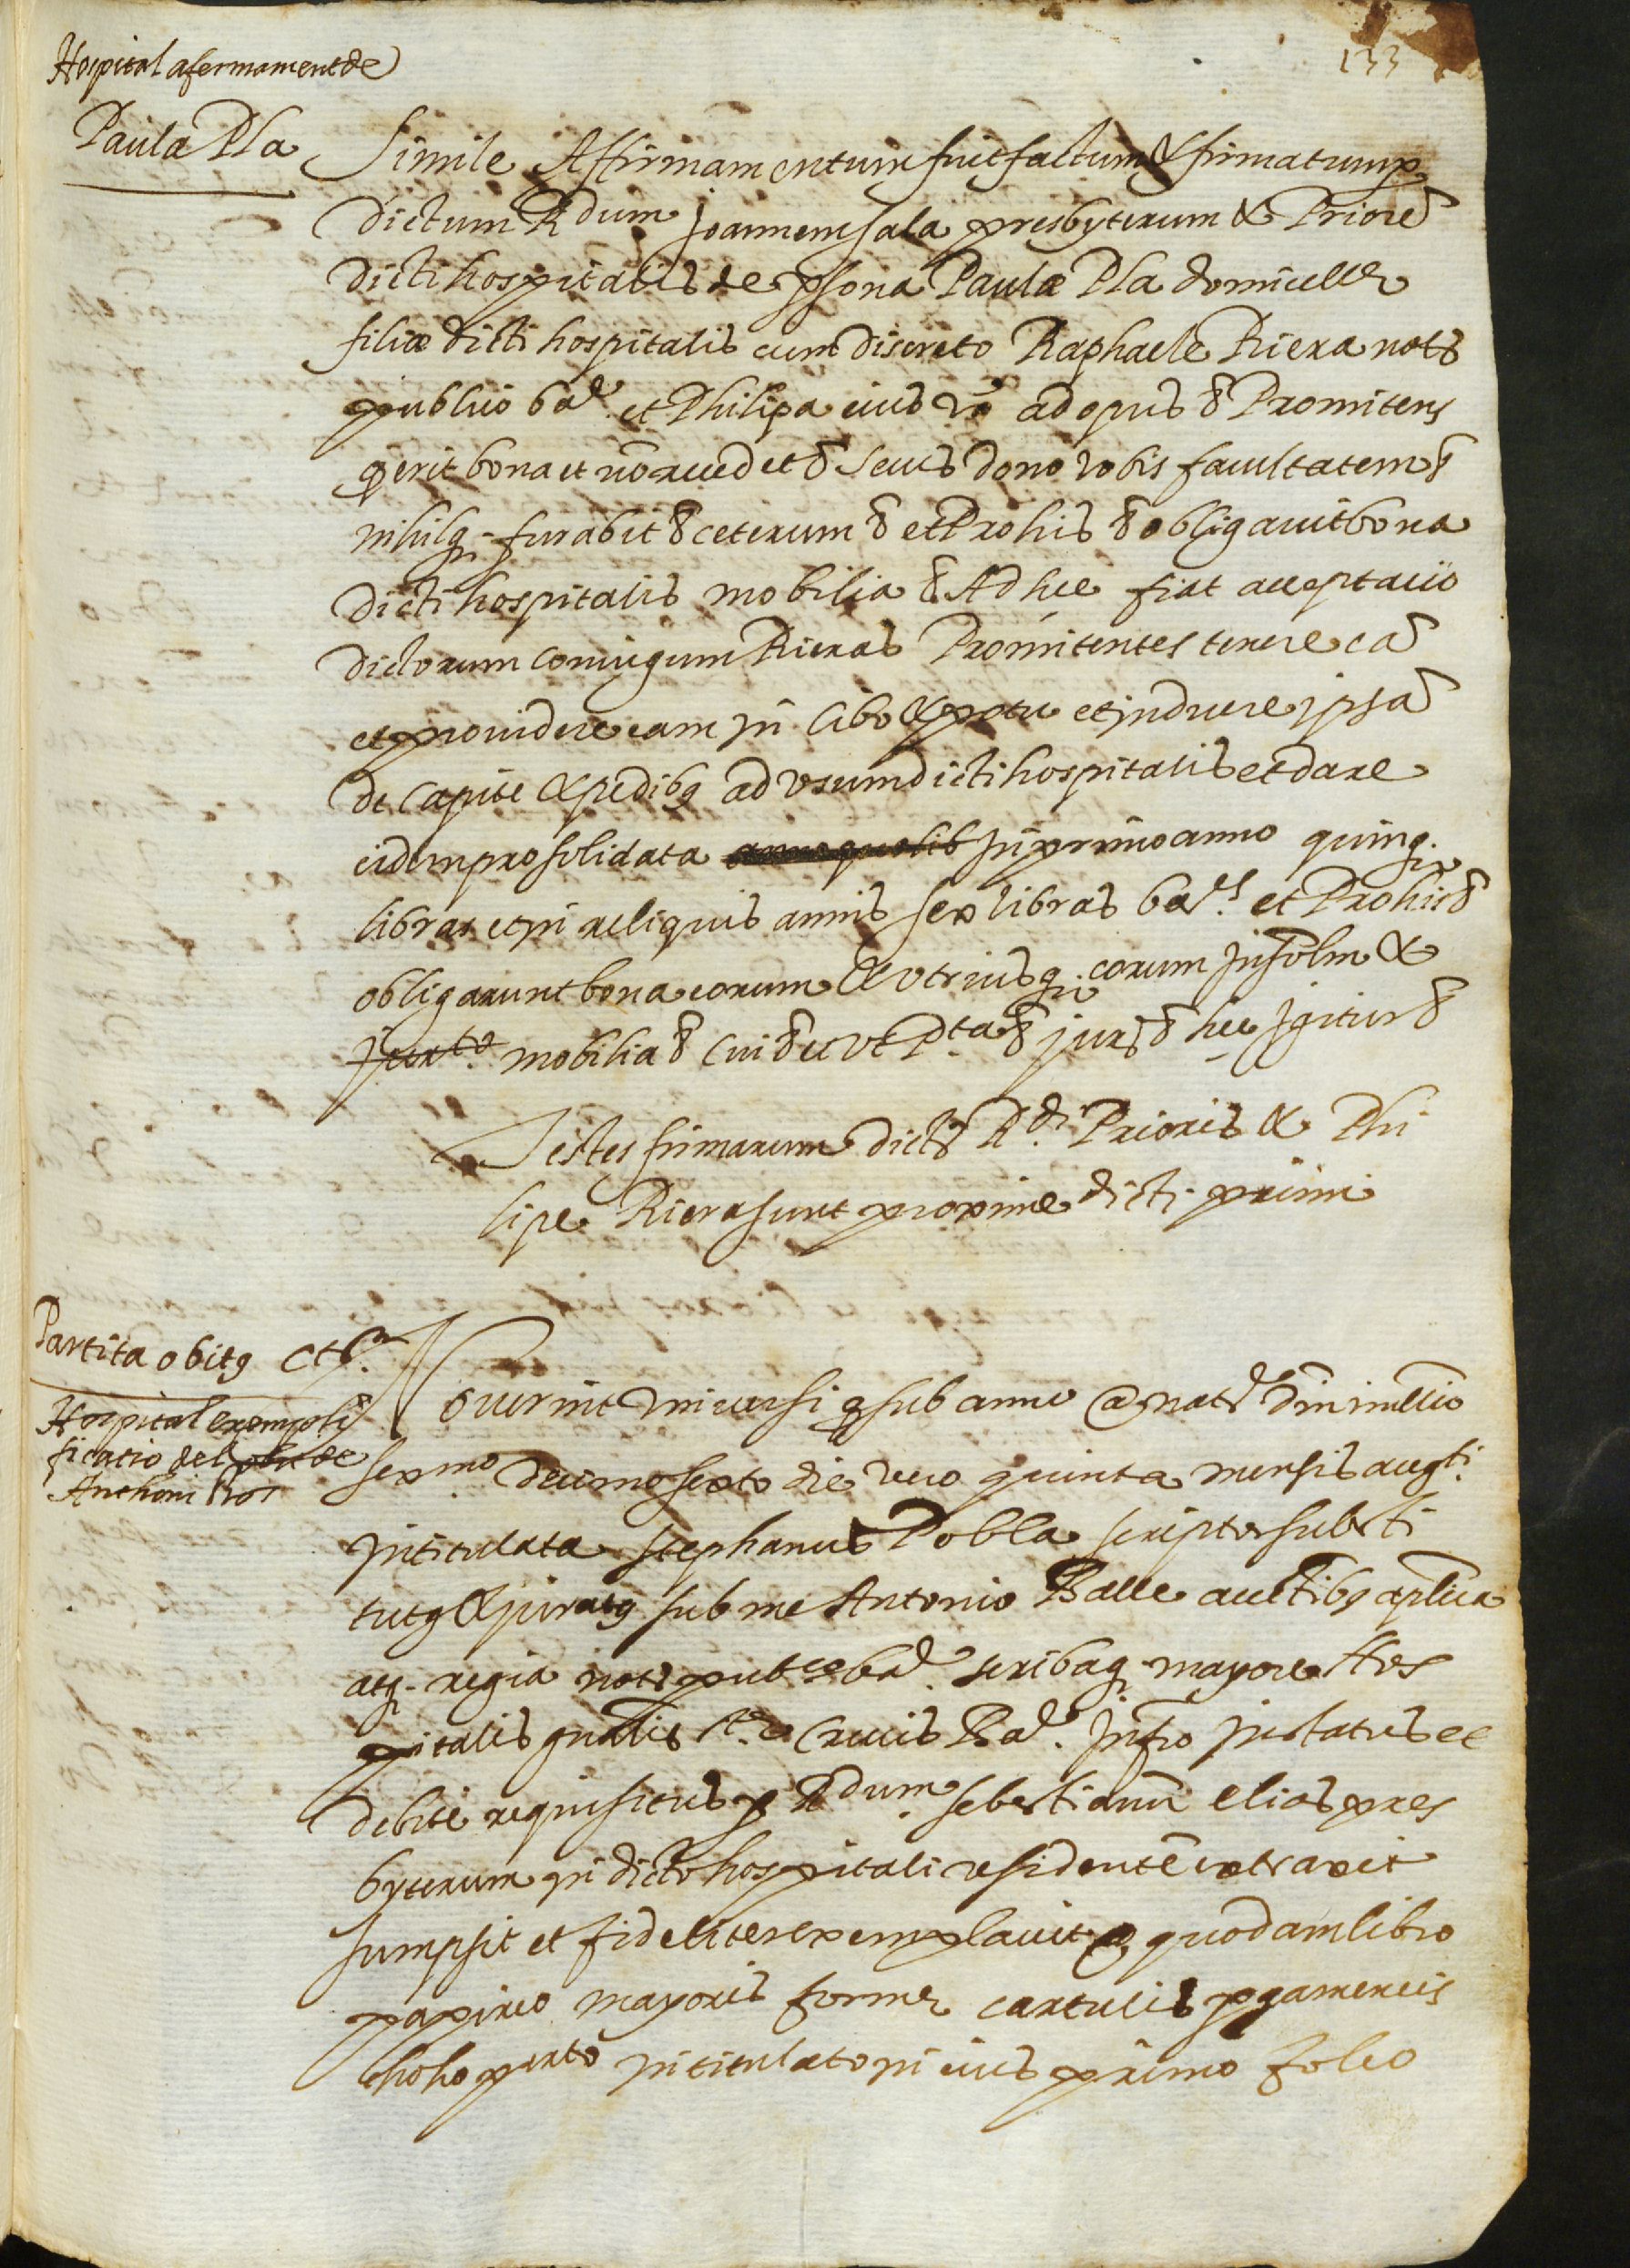 133
Hospital afermament de
Paula Pla
Simile Affirmamentum fuit factum & firmatum p
dictum Rdum Joannem sala presbyterum & Priorē
dicti hospitalis de psona Paulæ Pla domicelle
filiæ dicti hospitalis cum discreto Raphaele Riera notº
publico bar. et Philipa eius vx ad opus & Promitens
q erit bona et nō recedet & seu eis dono vobis facultatem &
nihilq; furabit & ceterum & et Pro his & obligauit bona
dicti hospitalis mobilia & Ad hec fiat acceptacio
dictorum coniugum Rieras Promitentes tenere eā
et prouidere eam in cibo & potu et induere ipsā
de capite & pedibꝯ ad vsum dicti hospitalis et dare
eidem pro solidata in primo anno quinq;
libras et in reliquis annis sex libras bar. et Pro his &
obligarunt bona eorum & vtriusq; eorum insolm &
mobilia & Cui & et vt Pta & jur & hec igitur &
Testes firmarum dictº Rdi Prioris & Phi
lipe Riera sunt proxime dicti primi
Partita obitꝯ
Hospital exempli
ficatio del de
Anthoni Ros
Nouerint vniuersi q sub anno a nate dni millio
sexmo decimo sexto die vero quinta mensis augti
intitulata stephanus Pobla scriptor substi
tutꝯ & juratꝯ sub me Antonio Batle auctibꝯ aplica
atq; regia notº pubco bar. scribaq; mayore Hos
pitalis gnalis Ste Crucis Bar. infro instatus et
debite requisitus p Rdum sebastianū elias pres
byterum in dicto hospitali residentē extraxit
sumpsit et fideliter exemplauit a quodam libro
papireo mayoris forme cartulis pgameneis
chohopertº intitulato in eius primo foleo